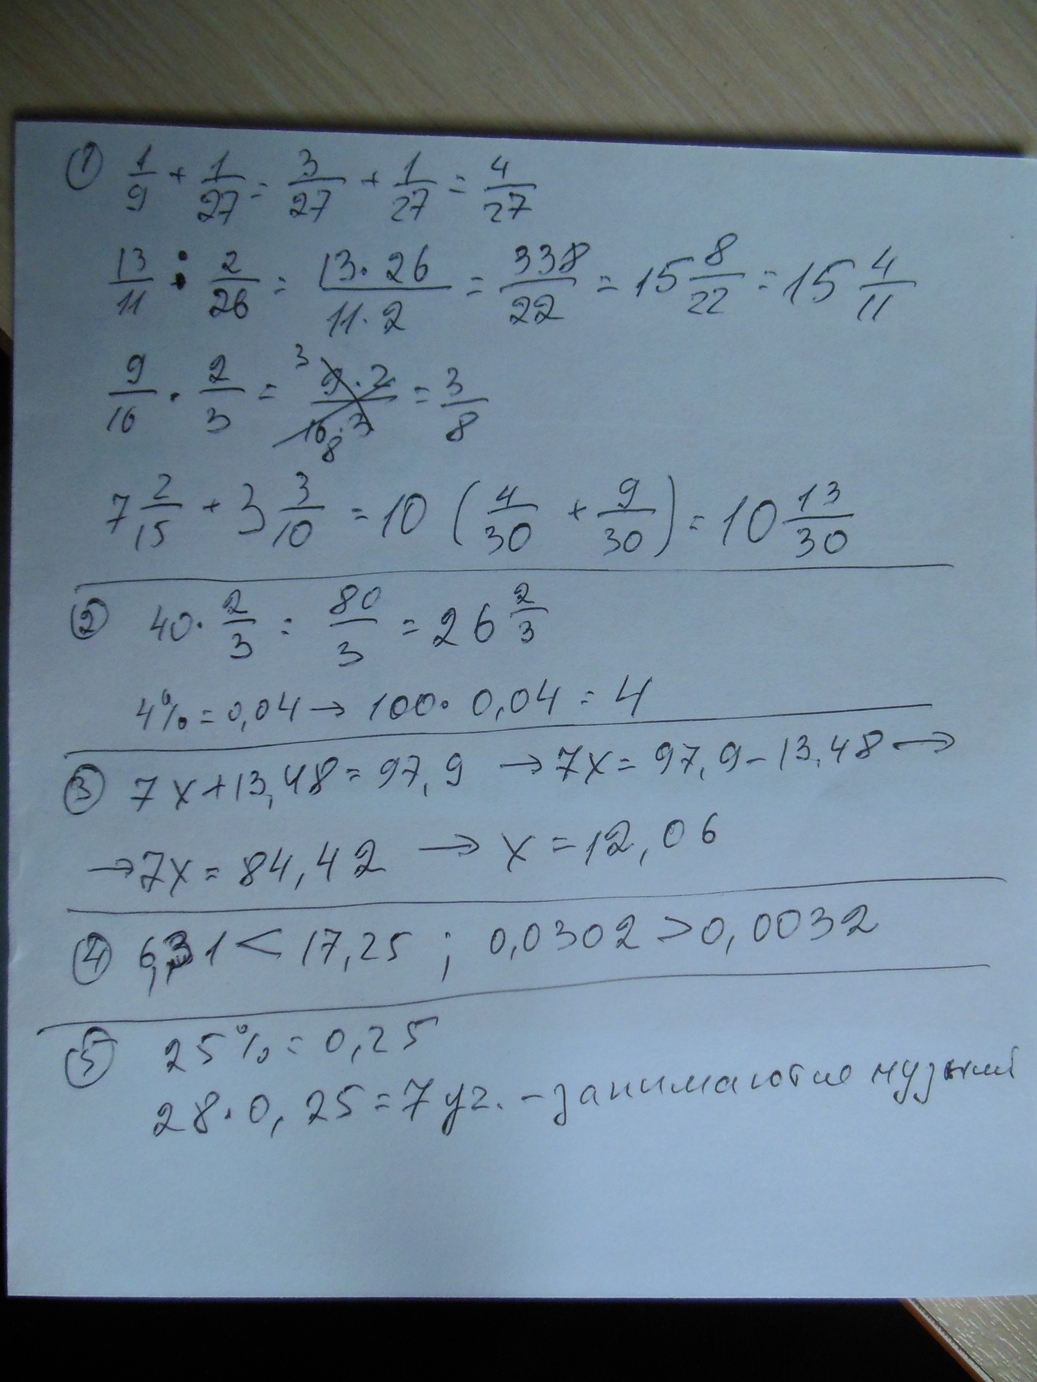 ① 1/9 + 1/27 = 3/27 + 1/27 = 4/27
13/11 : 2/26 = 13·26/11·2 = 338/22 = 15 8/22 = 15 4/11
9/16 · 2/3 = 3 9·2/16·3 8 = 3/8
7 2/15 + 3 3/10 = 10 (4/30 + 9/30) = 10 13/30
② 40· 2/3 = 80/3 = 26 2/3
4% = 0,04 → 100· 0,04 = 4
③ 7x+13,48 = 97,9 → 7x = 97,9 – 13,48 →
→ 7x = 84,42 → x = 12,06
④ 6,31 < 17,25 ; 0,0302 > 0,0032
⑤ 25% = 0,25
28·0,25 = 7 уч. – занимаются музыкой